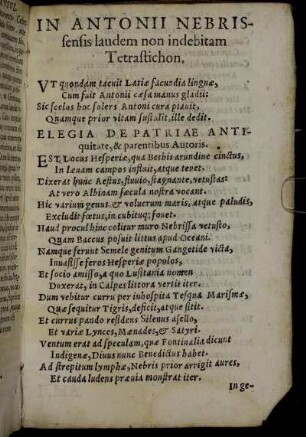 IN ANTONII NEBRIS-
sensis laudem non indebitam
Tetrastichon.
VT quondam tacuit Latiæ facundia linguæ,
Cum fuit Antonii cæsa manus gladii:
Sic scelas hoc solers Antoni cura piauit,
Quamque prior vitam sustulit, ille dedit.
ELEGIA DE PATRIAE ANTI-
quitate, & parentibus Autoris.
EST Locus Hesperiæ, qua Bethis arundine cinctus,
In læuam campos influit, atque tenet.
Dixerat hunc Aestus, fluuio, stagnante, vetustas
At vero Albinam sæcula nostra vocant.
Hic varium genus & volucrum maris, atque paludis,
Excludit fœtus, in cubituq; fouet.
Haud procul hinc colitur muro Nebrissa vetusto,
Quam Baccus posuit littus apud Oceani.
Namque ferunt Semele genitum Gangetide victa,
Inuasisse feros Hesperiæ populos,
Et socio amisso, a quo Lusitania nomen
Duxerat, in Calpes littora vertit iter.
Dum vehitur curru per inhospita Tesqua Marismæ,
Quæ sequitur Tigris, deficit, atque sitit.
Et currus pando residens Silenus asello,
Et variæ Lynces, Mænades, & Satyri.
Ventum erat ad speculam, quæ Fontinalia dicunt
Indigenæ, Diuus nunc Benedictus habet.
Ad strepitum lymphæ, Nebris prior arrigit aures,
Et cauda ludens præuia monstrat iter.
In ge-